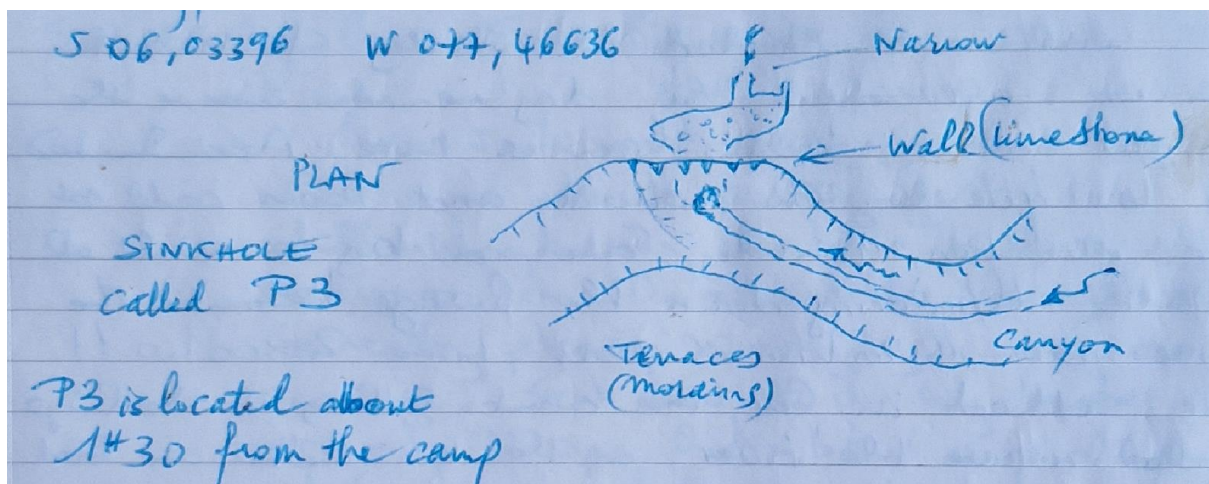 S 06,03396 W 077,46636
Narrow
Wall (limesthone)
PLAN
SINKHOLE
called P3
Canyon
Terraces
P3 is located about
1H30 from the camp